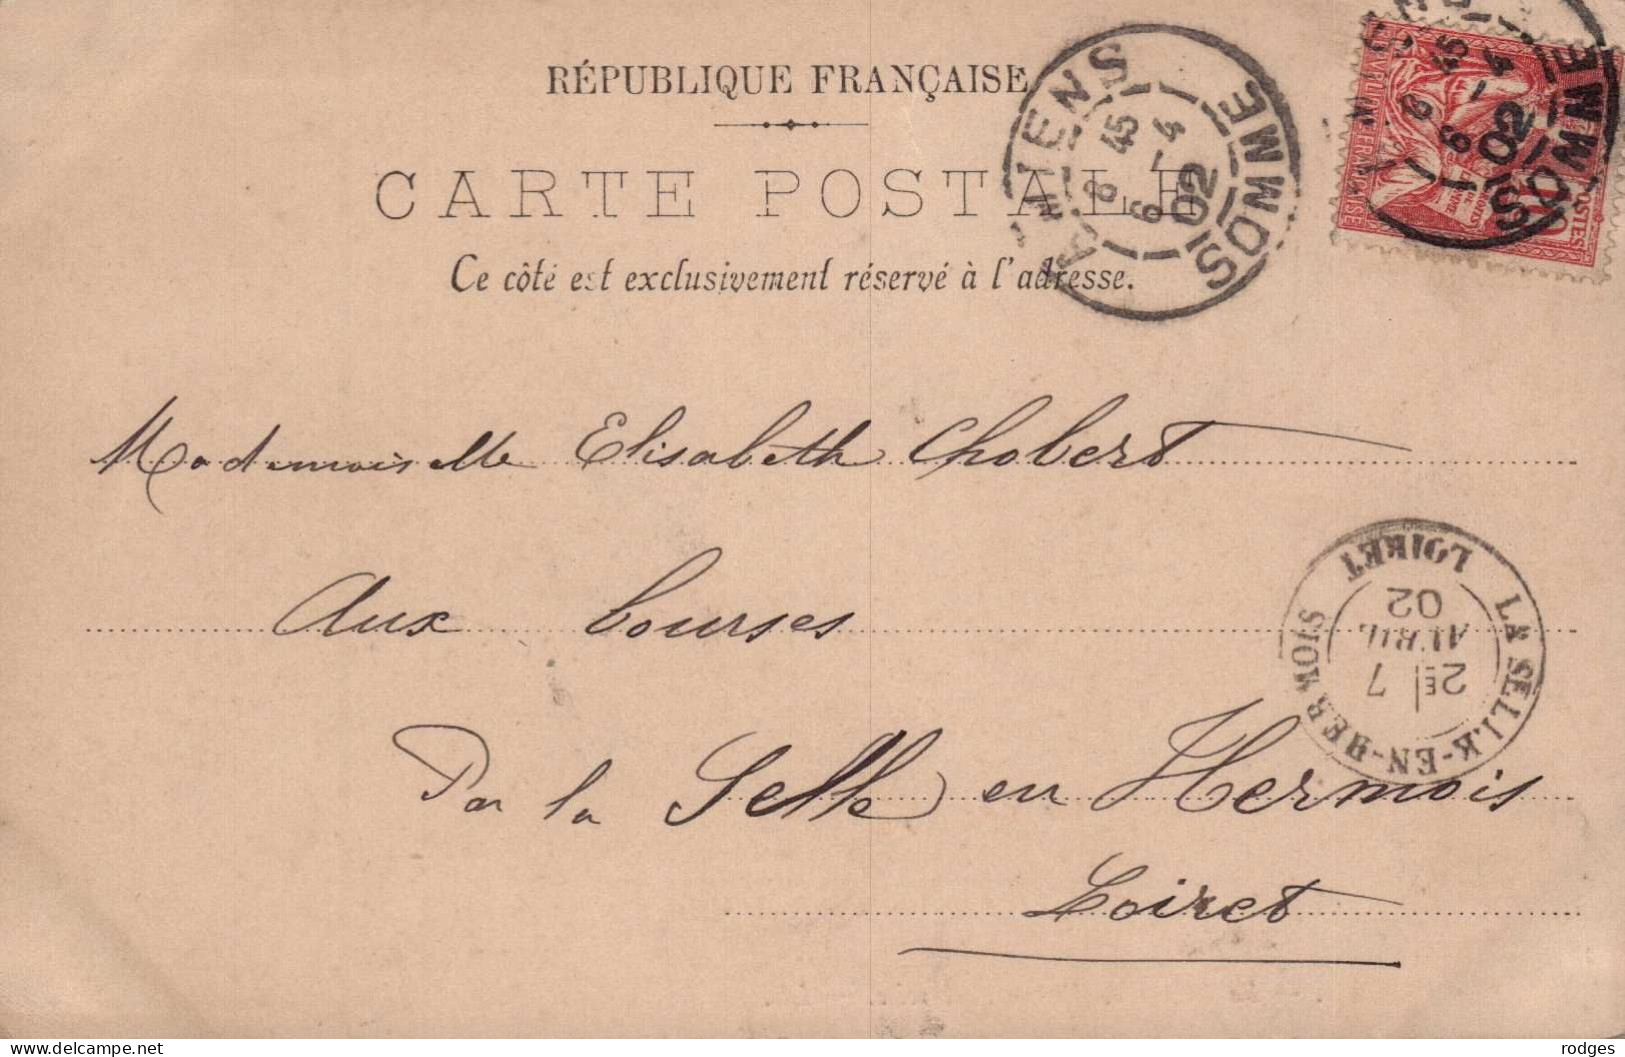 RÉPUBLIQUE FRANÇAISE
CARTE POSTALE
Ce côté est exclusivement réservé à l'adresse.
AMIENS
8 45
6 -4
02
SOMME
8 45
6 -4
02
SOMME
POSTES
Mademoiselle Elisabeth Chobert
Aux bourses
Par la Selle en Hermois
Loiret
LA SELLE-EN-HERMOIS
2E 7
AVRIL
02
LOIRET
delcampe.net
rodges